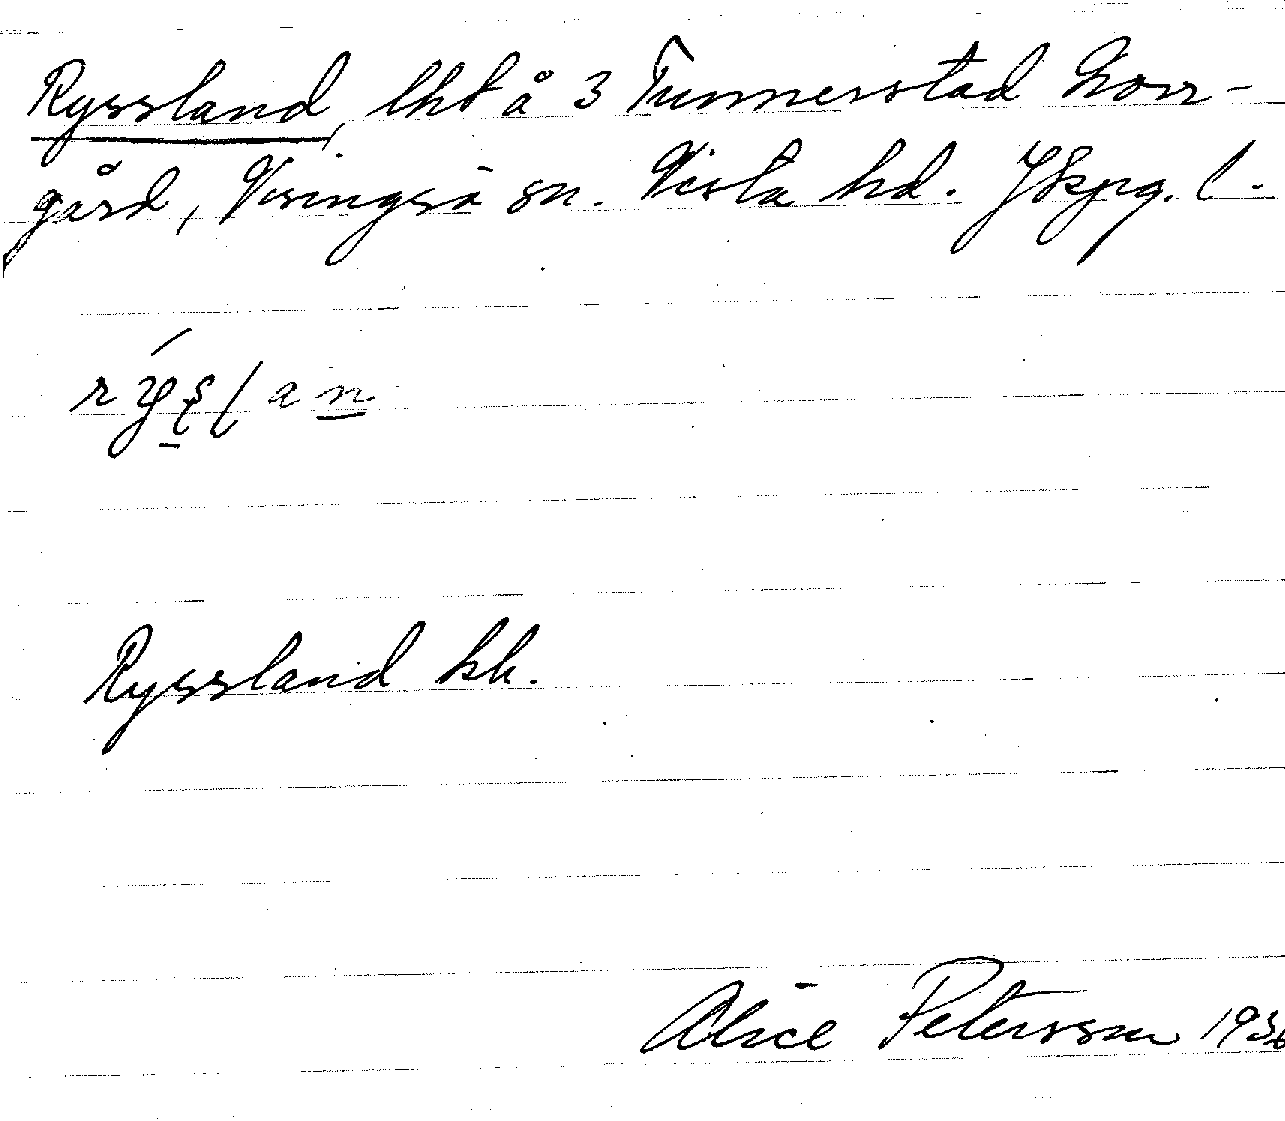 Ryssland, lht å 3 Tunnerstad Norr-
gård, Visingsö sn. Vista hd. Jkpg. l.
Ryssland kk.
Alice Petersson 1936